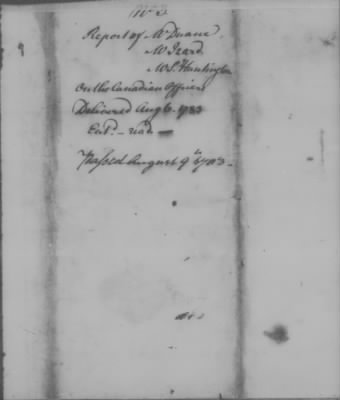 No 3
Report of Mr Duane
Mr Izard
Mr S. Huntington
On the Canadian Officers
Delivered Aug 6. 1783
Entd. - read -
Passed August 9th 1783 -